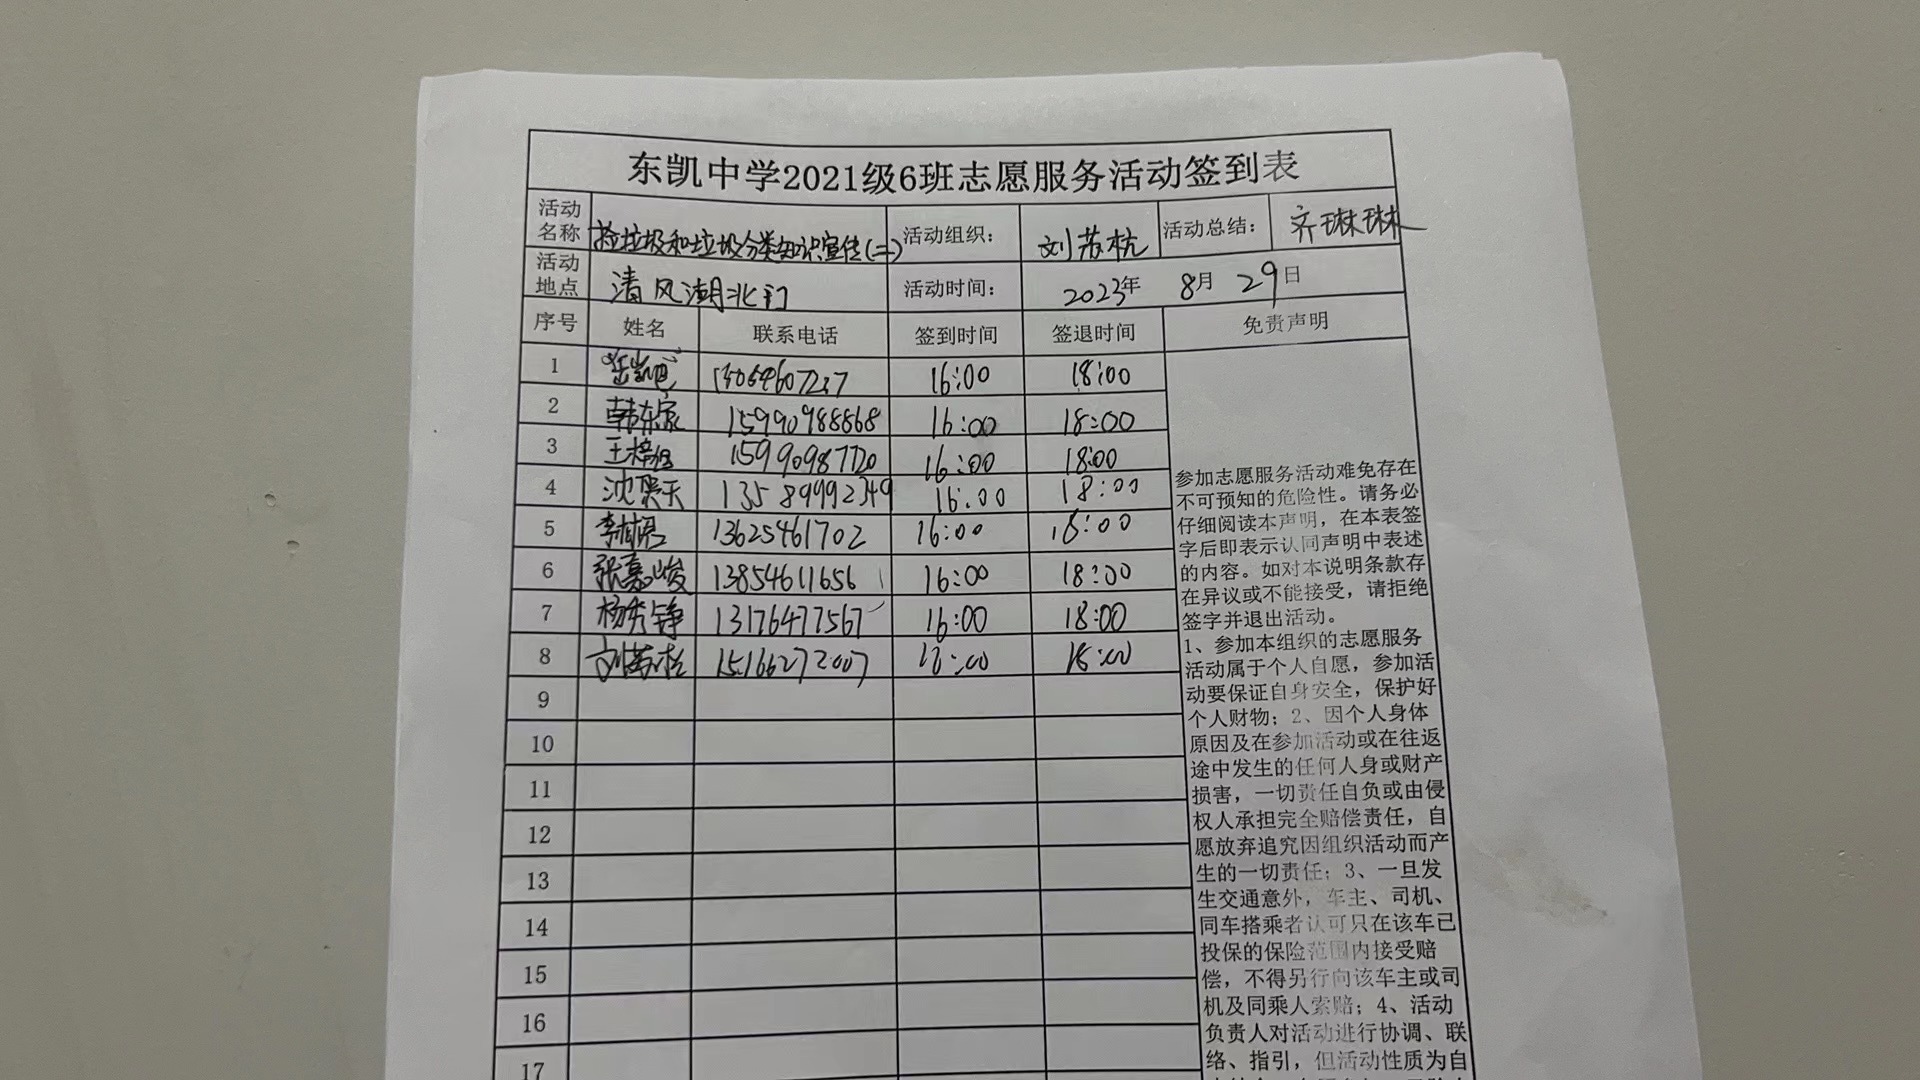 东凯中学2021级6班志愿服务活动签到表
活动名称 捡垃圾和垃圾分类知识宣传(二) 活动组织: 刘苏杭 活动总结: 齐琳琳
活动地点 清风湖北门 活动时间: 2023年 8月 29日
序号 姓名 联系电话 签到时间 签退时间 免责声明
1 16:00 18:00
2 韩东家 15990988868 16:00 18:00
3 15990987720 16:00 18:00
4 沈昊天 13589992349 16:00 18:00
5 13625461702 16:00 18:00
6 张嘉峻 13854611656 16:00 18:00
7 杨秀铮 13176477567 16:00 18:00
8 刘苏杭 15166272007 16:00 18:00
9
10
11
12
13
14
15
16
17
参加志愿服务活动难免存在
不可预知的危险性。请务必
仔细阅读本声明，在本表签
字后即表示认同声明中表述
的内容。如对本说明条款存
在异议或不能接受，请拒绝
签字并退出活动。
1、参加本组织的志愿服务
活动属于个人自愿，参加活
动要保证自身安全，保护好
个人财物；2、因个人身体
原因及在参加活动或在往返
途中发生的任何人身或财产
损害，一切责任自负或由侵
权人承担完全赔偿责任，自
愿放弃追究因组织活动而产
生的一切责任；3、一旦发
生交通意外，车主、司机、
同车搭乘者认可只在该车已
投保的保险范围内接受赔
偿，不得另行向该车主或司
机及同乘人索赔；4、活动
负责人对活动进行协调、联
络、指引，但活动性质为自